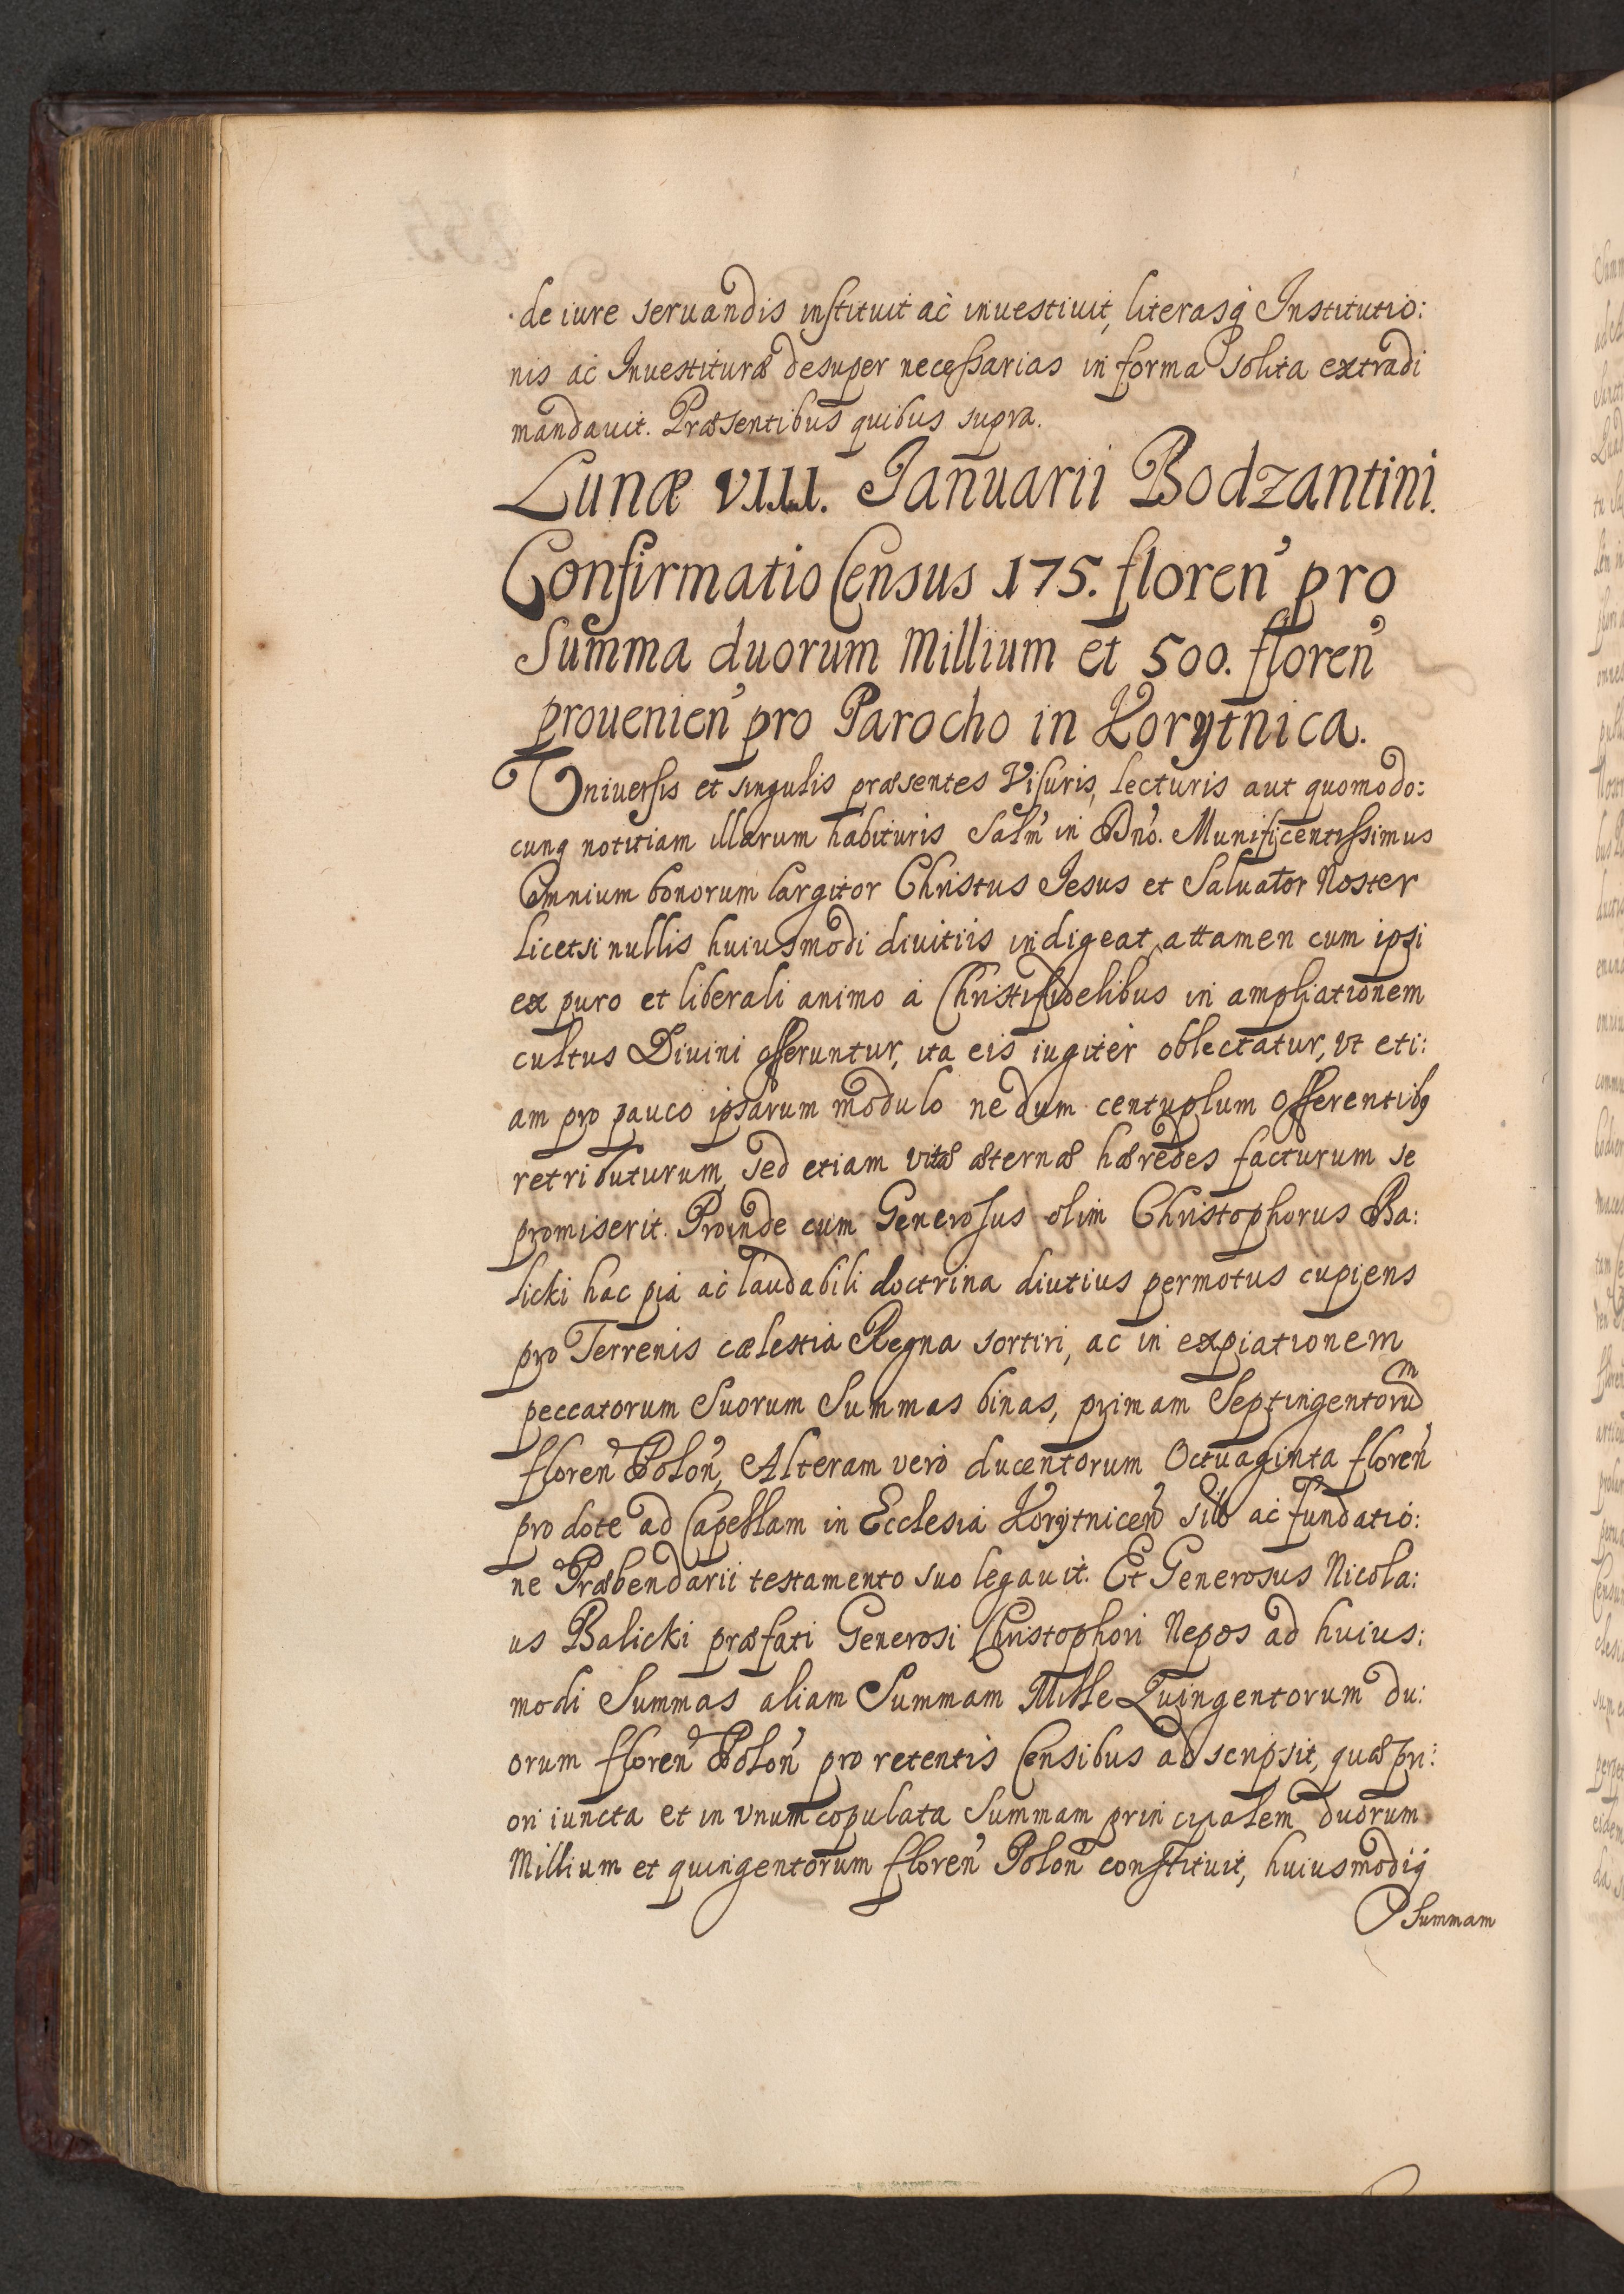 de iure seruandis instituit ac inuestiuit, literasq́ Institutio:
nis ac Inuestituræ desuper necessarias in forma solita extradi
mandauit. Præsentibus quibus supra.
Lunæ VIII. Ianuarii Bodzantini.
Confirmatio Census 175. floren̓ pro
Summa duorum Millium et 500. floren̓
prouenien̓ pro Parocho in Korytnica.
Vniuersis et singulis præsentes Visuris, lecturis aut quomodo:
cunq notitiam illarum habituris Salm̓ in Dn̓o. Munificentissimus
Omnium bonorum largitor Christus Iesus et Saluator Noster
licetsi nullis huiusmodi diuitiis indigeat, attamen cum ipsi
ex puro et liberali animo à Christifidelibus in ampliationem
cultus Diuini offeruntur, ita eis iugiter oblectatur, vt eti:
am pro pauco ipsarum modulo nedum centuplum offerentibq
retributurum, sed etiam vitæ æternæ hæredes facturum se
promiserit. Proinde cum Generosus olim Christophorus Ba:
licki hac pia ac laudabili doctrina diutius permotus cupiens
pro Terrenis cælestia Regna sortiri, ac in expiationem
peccatorum Suorum Summas binas, primam Septingentorum
floren̓ Polon̓, Alteram vero ducentorum Octuaginta floren̓
pro dote ad Capellam in Ecclesia Korytnicen̓ ac fundatio:
ne Præbendarii testamento suo legauit. Et Generosus Nicola:
us Balicki præfati Generosi Christophori Nepos ad huius:
modi Summas aliam Summam Mille Quingentorum du:
orum floren̓ Polon̓ pro retentis Censibus adscripsit, quæ pri:
ori iuncta et in vnum copulata Summam principalem duorum
Millium et quingentorum floren̓ Polon̓ constituit, huiusmodiq́
Summam